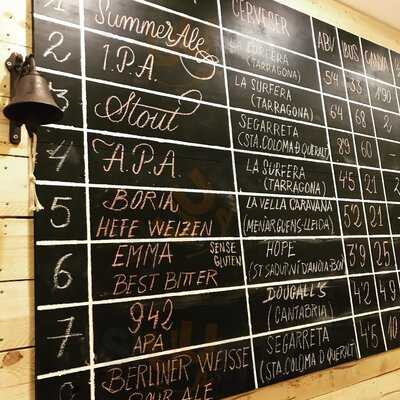 CERVEȘER ABV IBUS CANYA
1 Summer Ale LA SURFERA (TARRAGONA) 5'4 38 1'90
2 I.P.A. LA SURFERA (TARRAGONA) 6'4 68 2
3 Stout SEGARRETA (STA. COLOMA D QUERALT) 8'9 60
4 A.P.A. LA SURFERA (TARRAGONA) 4'5 21 2
5 BORIA HEFE WEIZEN LA VELLA CARAVANA (MENARGUENS-LLEIDA) 5'2 21
6 EMMA BEST BITTER SENSE GLUTEN HOPE (ST SADURNÍ D'ANOIA-BCN) 3'9 25
7 942 APA DOUGALL'S (CANTABRIA) 4'2 49
BERLINER WEISSE SOUR ALE SEGARRETA (STA. COLOMA D QUERALT) 4'5 10